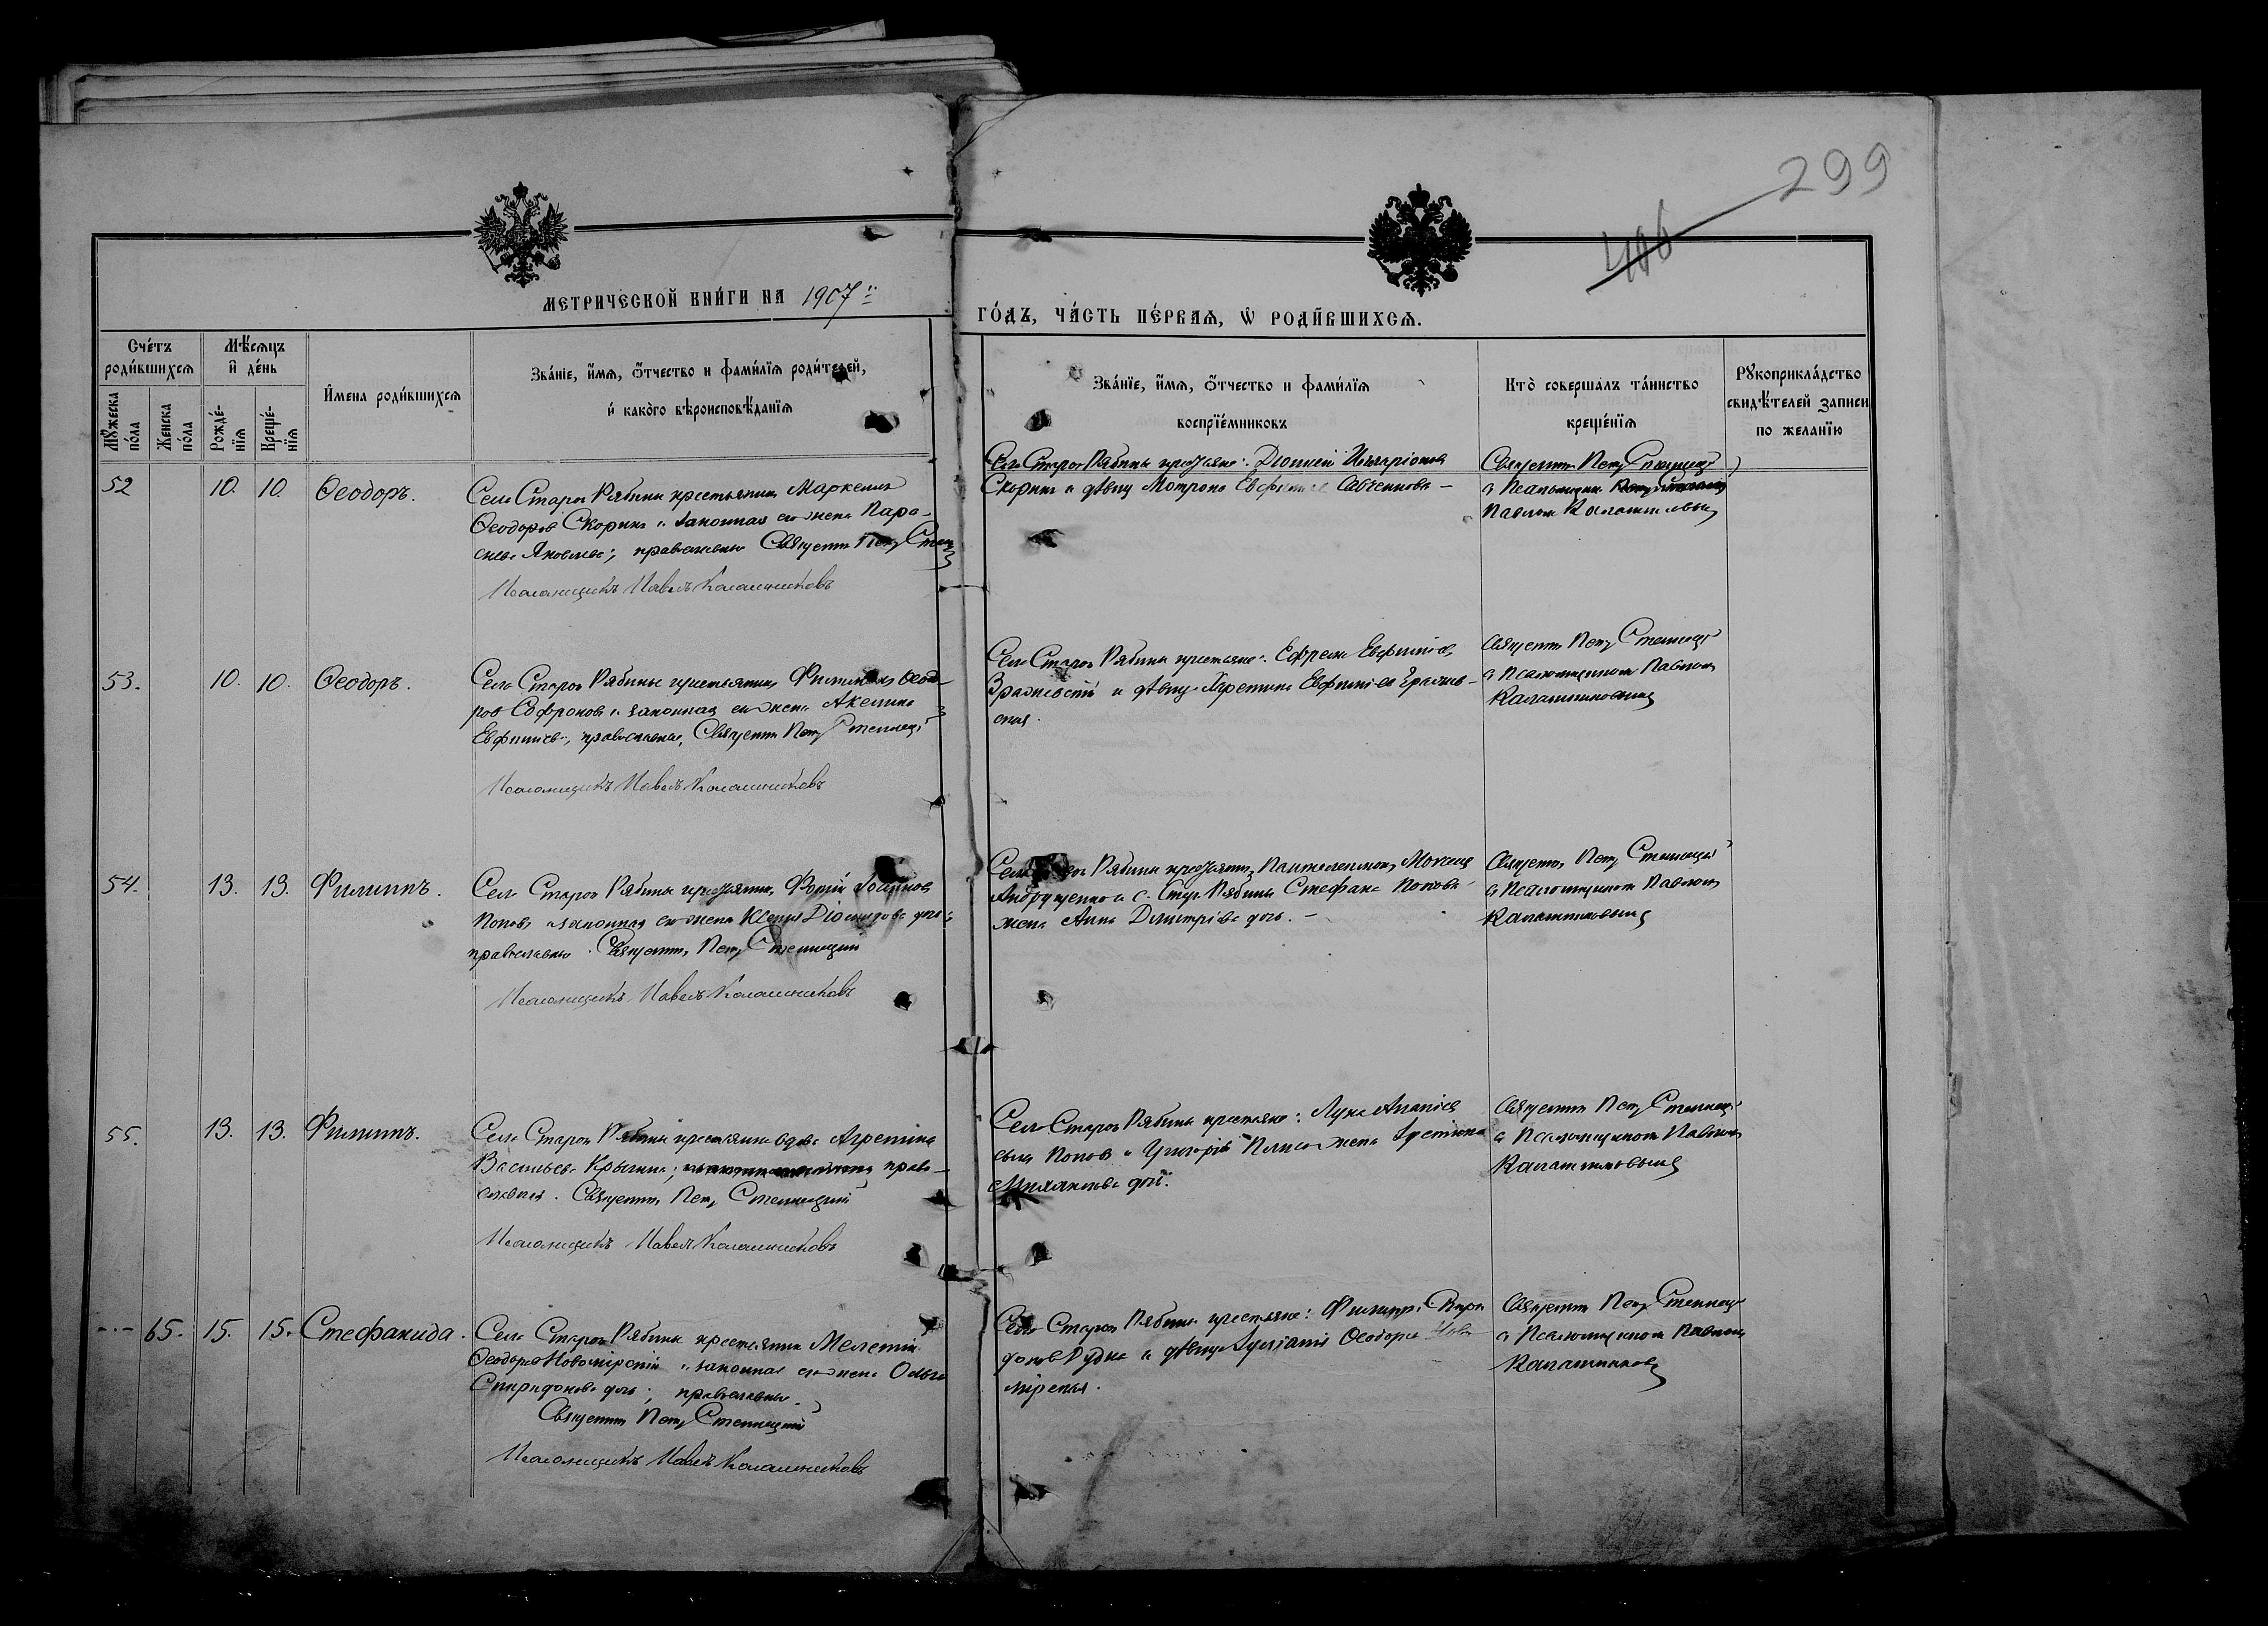 299
406
МЕТРИЧЕСКОЙ КНИ́ГИ НА 1907
ГО́ДЪ, ЧА́СТЬ ПЕ́РВАЯ, Ѡ РОДИ́ВШИХСЯ.
Сче́тъ роди́вшихся
Мѣ́сяцъ и де́нь
Имена роди́вшихся
Зва́нїе, и́мя, о́тчество и фами́лїя роди́телей,
и како́го вѣроисповѣ́данїя
Зва́нїе, и́мя, о́тчество и фами́лїя
воспрїе́мниковъ
Кто̀ соверша́лъ та́инство
креще́нїя
Рꙋкоприкла́дство
свидѣ́телей записи
по желанїю
Мꙋ́жеска по́ла
Же́нска по́ла
Рожде́нїя
Креще́нїя
52
10.
10.
Ѳеодоръ.
Села Старой Рябины крестьянинъ Маркеллъ
Ѳеодоровъ Скорикъ и законная его жена Пара-
скева Яковлева; православные Священникъ Петръ
Псаломщикъ Павелъ Калашниковъ
Села Старой Рябины крестьяне: Иларіоновъ
Скорикъ и дѣвица Мотрона Савченкова -
Священникъ Петръ
съ Псаломщикомъ
Павломъ Калашниковымъ
53.
10.
10.
Ѳеодоръ.
Села Старой Рябины крестьянинъ Филимонъ Ѳеодо-
ровъ Софроновъ и законная его жена Акелина
Евфиміева, православные, Священникъ Петръ
Псаломщикъ Павелъ Калашниковъ
Села Старой Рябины крестьяне: Ефремъ Евфиміевъ
и дѣвица Евфиміева
ская.
Священникъ Петръ
съ Псаломщикомъ Павломъ
Калашниковымъ
54.
13.
13.
Филиппъ.
Села Старой Рябины крестьянинъ Фотій Іоанновъ
Поповъ и законная его жена Ксенія Діомидова дочь;
православные. Священникъ Петръ
Псаломщикъ Павелъ Калашниковъ
Села Рябины крестьянинъ Пантелеимонъ
Андрущенко и с. Стар. Рябины Стефана Попова
жена Анна Димитріева дочь. -
Священникъ Петръ
съ Псаломщикомъ Павломъ
Калашниковымъ
55.
13.
13.
Филиппъ.
Села Старой Рябины крестьянка вдова Агрепина
Васильева Крылина; право-
славная. Священникъ Петръ
Псаломщикъ Павелъ Калашниковъ
Села Старой Рябины крестьяне: Лука Ананіевъ
сынъ Поповъ и Григорія жена
дочь.
Священникъ Петръ
съ Псаломщикомъ Павломъ
Калашниковымъ
65.
15.
15.
Стефанида.
Села Старой Рябины крестьянинъ Мелетій
Ѳеодоровъ Новомірскій и законная его жена Ольга
Спиридонова дочь; православные.
Священникъ Петръ
Псаломщикъ Павелъ Калашниковъ
Села Старой Рябины крестьяне: Филиппъ Спири
доновъ Рудка и дѣвица Ѳеодорова Ново
мірская.
Священникъ Петръ
съ Псаломщикомъ Павломъ
Калашниковымъ